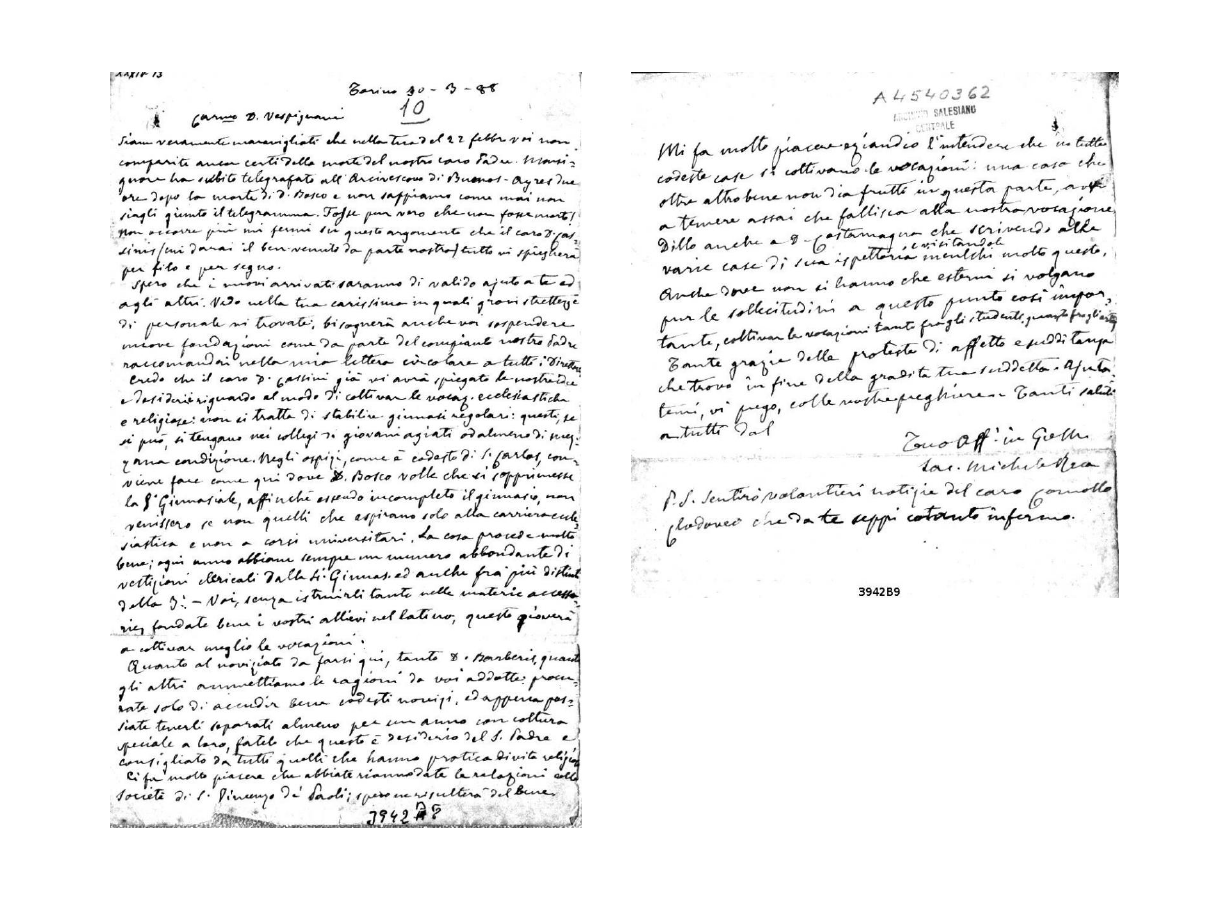 XXIV 13
Torino 30 - 3 - 88
10
Carmo D. Vespignani
Siam veramente maravigliati che nella tua del 22 febbr voi non
comparite ancor certi della morte del nostro caro Padre. Monsi=
gnore ha subito telegrafato all'Arcivescovo di Buenos-Ayres due
ore dopo la morte di D. Bosco e non sappiamo come mai non
siagli giunto il telegramma. Fosse pur vero che non fosse morto!
Non occorre più mi fermi su questo argomento che il caro D. Cas=
sinis (cui darai il ben venuto da parte nostra) tutto vi spiegherà
per filo e per segno.
Spero che i nuovi arrivati saranno di valido ajuto a te ed
agli altri. Vedo nella tua carissima in quali gravi strettezze
di personale vi trovate, bisognerà anche voi sospendere
nuove fondazioni come da parte del compianto nostro Padre
raccomandai nella mia lettera circolare a tutti i Direttori
Credo che il caro D. Cassini già vi avrà spiegato le nostre idee
e desiderii riguardo al modo di coltivar le vocaz. ecclesiastiche
e religiose: non si tratta di stabilire ginnasi regolari: questi, se
si può, si tengano nei collegi di giovani agiati od almeno di mez=
zana condizione. Negli ospizi, come è codesto di S. Carlos, con=
viene fare come qui dove D. Bosco volle che si sopprimesse
la 5ª Ginnasiale, affinchè essendo incompleto il ginnasio, non
venissero se non quelli che aspirano solo alla carriera eccle
siastica e non a corsi universitari. La cosa procede molto
bene; ogni anno abbiamo sempre un numero abbondante di
vestizioni clericali dalla 4ª Ginnas. ed anche fra i più distinti
della 3ª. - Voi, senza istruirli tanto nelle materie accesso=
rie, fondate bene i vostri allievi nel latino, questo gioverà
a coltivar meglio le vocazioni.
Quanto al noviziato da farsi qui, tanto D. Barberis, quanto
gli altri ammettiamo le ragioni da voi addotte: procu=
rate solo di accudir bene codesti novizi, ed appena pos=
siate tenerli separati almeno per un anno con coltura
speciale a loro, fatelo che questo è desiderio del S. Padre e
consigliato da tutti quelli che hanno pratica di vita religiosa
Ci fa molto piacere che abbiate riannodate le relazioni colla
Società di S. Vincenzo de' Paoli; spero ne risulterà del bene
3942
A4540362
ARCHIVIO SALESIANO
CENTRALE
Mi fa molto piacere eziandio l'intendere che in tutte
codeste case si coltivano le vocazioni: una casa che
oltre altro bene non dia frutti in questa parte,
a temere assai che fallisca alla nostra vocazione
Dillo anche a D. Costamagna che scrivendo alle
e visitandole
varie case di sua ispettoria inculchi molto questo.
Anche dove non si hanno che esterni si volgano
pur le sollecitudini a questo punto così impor=
tante, coltivar le vocazioni tanto fra gli studenti, quanto fra gli artig
Tante grazie delle proteste di affetto e sudditanza
che trovo in fine della gradita tua suddetta. Ajuta
temi, vi prego, colle vostre preghiere. Tanti saluti
a tutti dal
Tuo Aff. in G.
Sac. Michele Rua
P.S. Sentirò volontieri notizie del caro
Clodoveo che da te seppi cotanto infermo.
3942B9